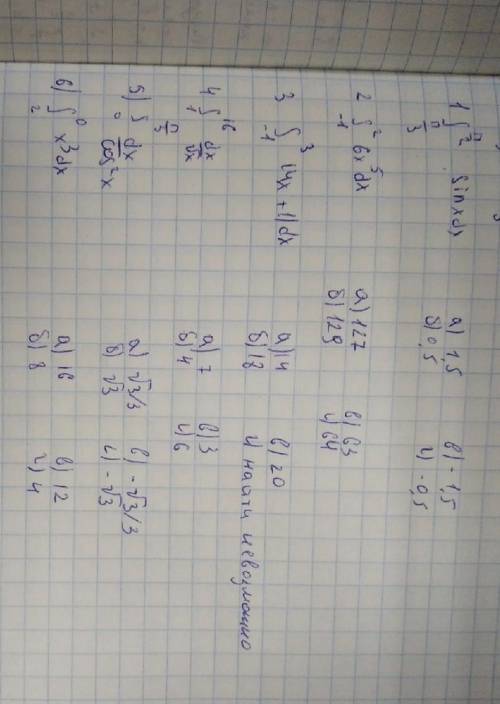 1 ∫ π/2 π/3 sinxdx а) 1,5 в) -1,5
б) 0,5 г) -0,5
2 ∫ 2 -1 6x⁵dx а) 127 в) 63
б) 129 г) 64
3 ∫ 3 -1 |4x+1|dx а) 14 в) 20
б) 18 г) найти невозможно
4 ∫ 16 1 dx/√x а) 7 в) 3
б) 4 г) 6
5) ∫ π/3 0 dx/cos²x а) √3/3 в) -√3/3
б) √3 г) -√3
6) ∫ 0 2 x³dx а) 16 в) 12
б) 8 г) 4